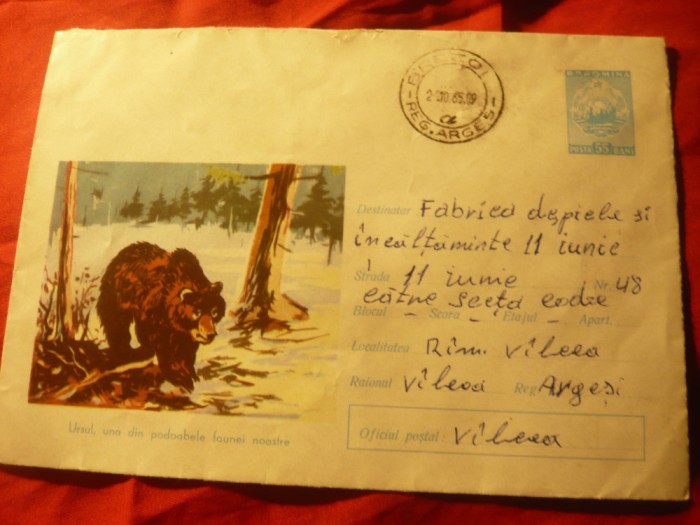 BREZOI
2-10.65.09
REG. ARGEȘ
R.P.ROMINA
POSTA 55 BANI
Destinatar Fabrica de piele si
încălțăminte 11 iunie
Strada 11 iunie Nr. 48
către Secția
Blocul Scara Etajul Apart.
Localitatea Rim. Vîlcea
Raionul Vîlcea Reg. Argeși
Oficiul poștal: Vîlcea
Ursul, una din podoabele faunei noastre